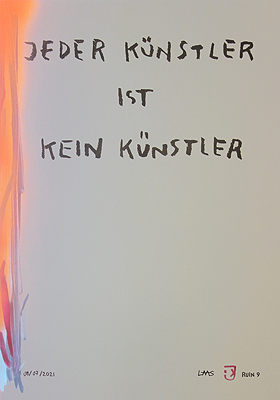 JEDER KÜNSTLER
IST
KEIN KÜNSTLER
LMS
RUIN 9